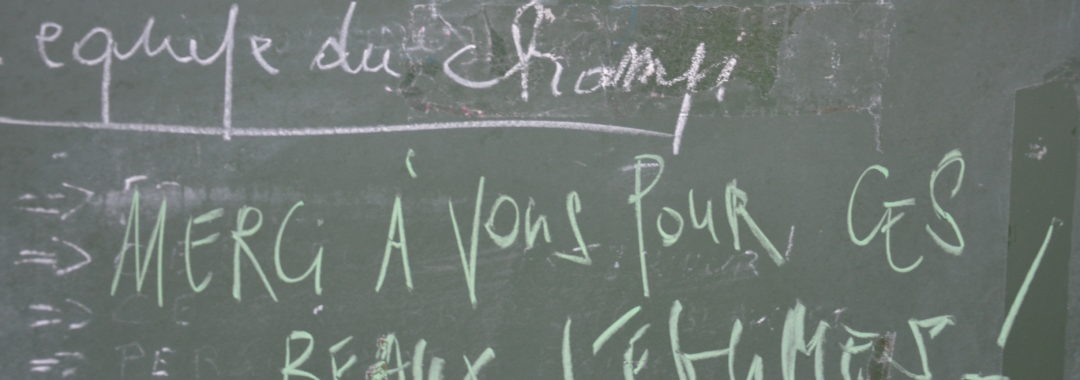 equipe du champi
MERCI À VOUS POUR CES
BEAUX LÉGUMES !